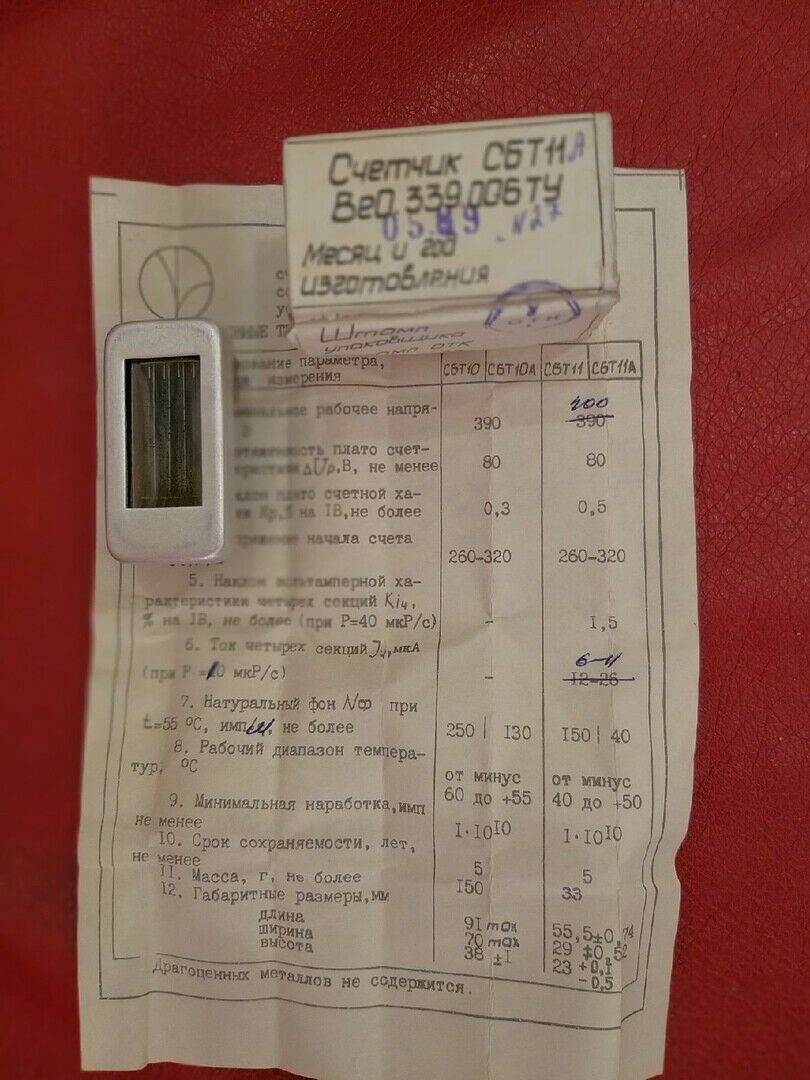 Счетчик СБТ11А
Ве0.339.006ТУ
05.89 N27
Месяц и год
изготовления
ОТК
Штамп
упаковщика
ОТК
параметра,
измерения
СБТ10 СБТ10А СБТ11 СБТ11А
рабочее напря-
390 400 390
плато счет-
ΔUр,В, не менее 80 80
счетной ха-
на IВ,не более 0,3 0,5
начала счета
260-320 260-320
5. Наклон вольтамперной ха-
рактеристики четырех секций Кi4,
% на IВ, не более (при Р=40 мкР/с) - I,5
6. Ток четырех секций J4,мкА
6-11
(при мкР/с) - I2-26
7. Натуральный фон Nф при
t=55 °С, имп не более 250 | I30 I50 | 40
8. Рабочий диапазон темпера-
тур, °С
от минус от минус
60 до +55 40 до +50
9. Минимальная наработка,имп
не менее I·I0I0 I·I0I0
10. Срок сохраняемости, лет,
не менее 5 5
11. Масса, г, не более I50 33
12. Габаритные размеры,мм
длина 91 max 55,5±0,74
ширина 70 max 29 ±0,52
высота 38 ±I 23 +0,I
-0,5
Драгоценных металлов не содержится.